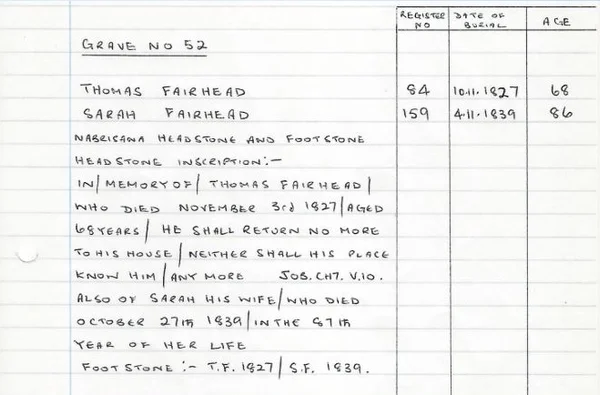 REGISTER NO DATE OF BURIAL AGE
GRAVE NO 52
THOMAS FAIRHEAD 84 10.11.1827 68
SARAH FAIRHEAD 159 4.11.1839 86
NABRISANA HEADSTONE AND FOOTSTONE
HEADSTONE INSCRIPTION:-
IN/MEMORY OF/ THOMAS FAIRHEAD/
WHO DIED NOVEMBER 3rd 1827/AGED
68 YEARS/ HE SHALL RETURN NO MORE
TO HIS HOUSE/NEITHER SHALL HIS PLACE
KNOW HIM/ANY MORE JOB. CH7. V.10.
ALSO OF SARAH HIS WIFE/WHO DIED
OCTOBER 27TH 1839/IN THE 87TH
YEAR OF HER LIFE
FOOTSTONE:- T.F. 1827/ S.F. 1839.